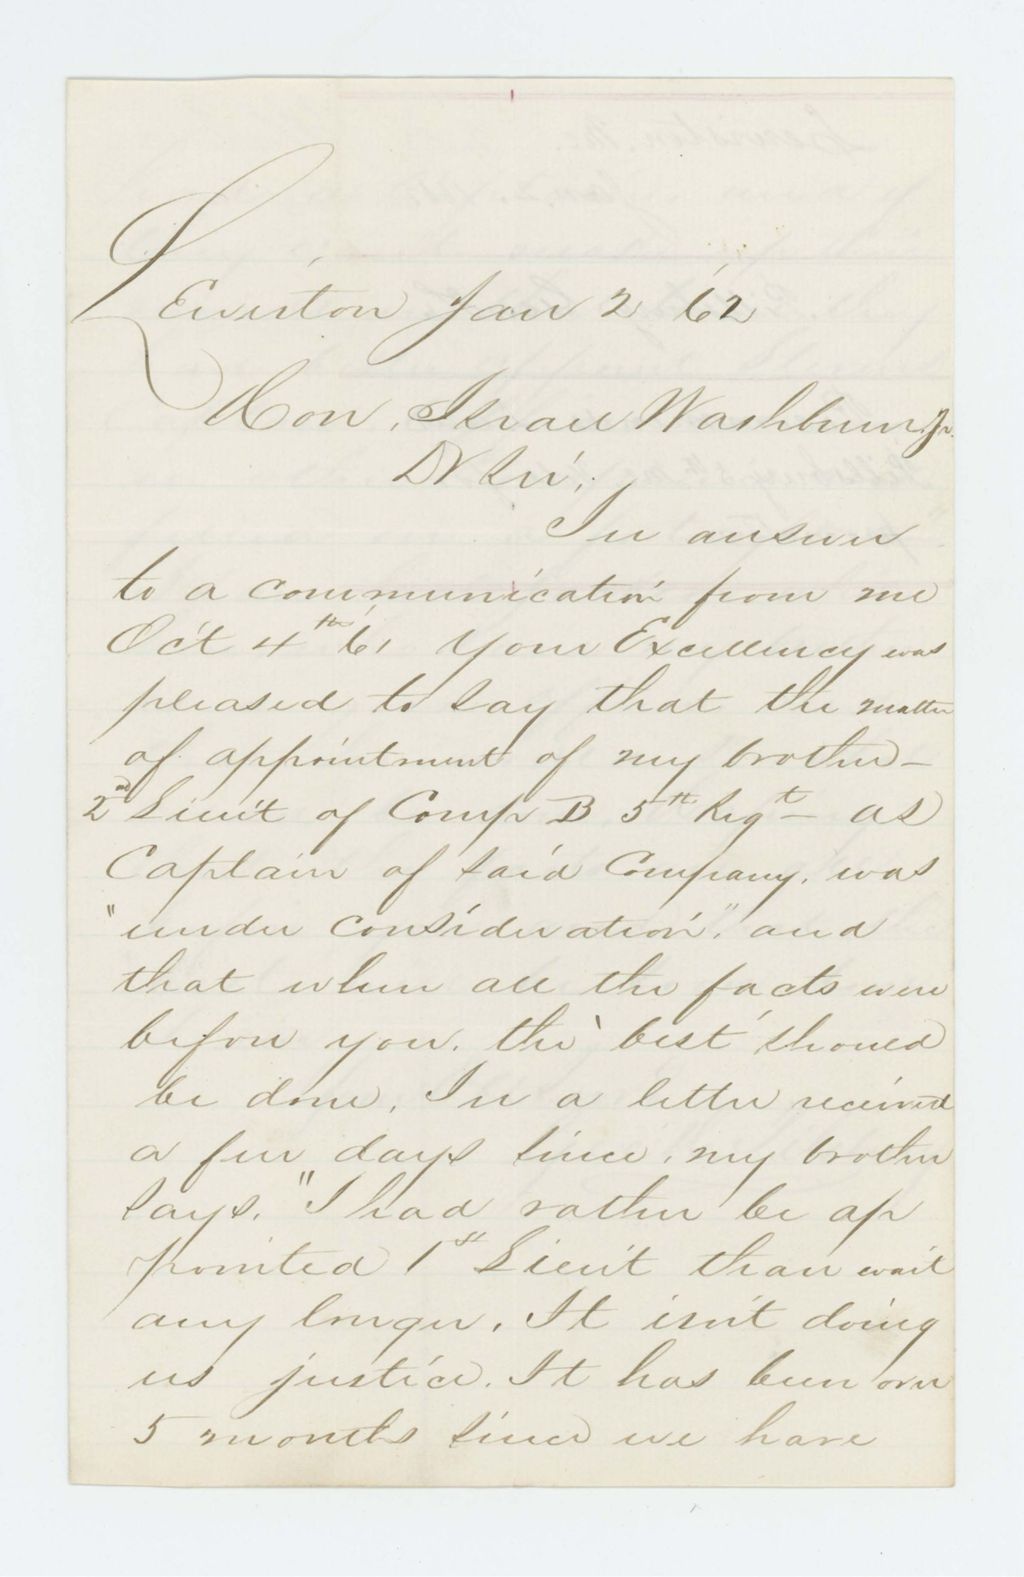 Lewiston Jan 2 '62
Hon. Israel Washburn Jr.
Dr Sir,
In answer
to a communication from me
Oct 4th '61 Your Excellency was
pleased to say that the matter
of appointment of my brother -
2nd Lieu't of Comp B 5th Regt - as
Captain of said Company, was
"under consideration," and
that when all the facts were
before you, the 'best' should
be done. In a letter received
a few days since, my brother
says, "I had rather be ap
pointed 1st Lieu't than wait
any longer. It isn't doing
us justice. It has been over
5 months since we have